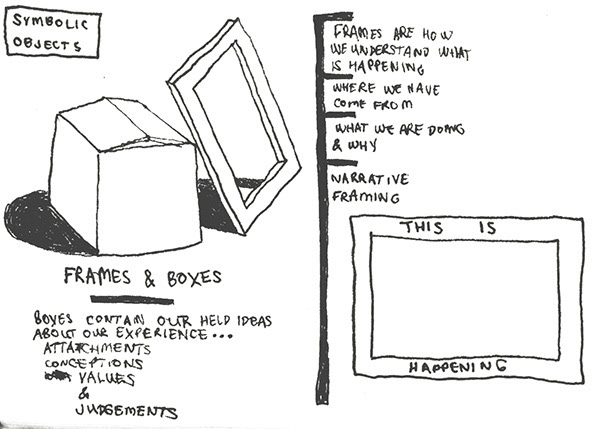 SYMBOLIC
OBJECTS
FRAMES & BOXES
BOXES CONTAIN OUR HELD IDEAS
ABOUT OUR EXPERIENCE...
ATTATCHMENTS
CONCEPTIONS
VALUES
&
JUDGEMENTS
FRAMES ARE HOW
WE UNDERSTAND WHAT
IS HAPPENING
WHERE WE HAVE
COME FROM
WHAT WE ARE DOING
& WHY
NARRATIVE
FRAMING
THIS IS
HAPPENING